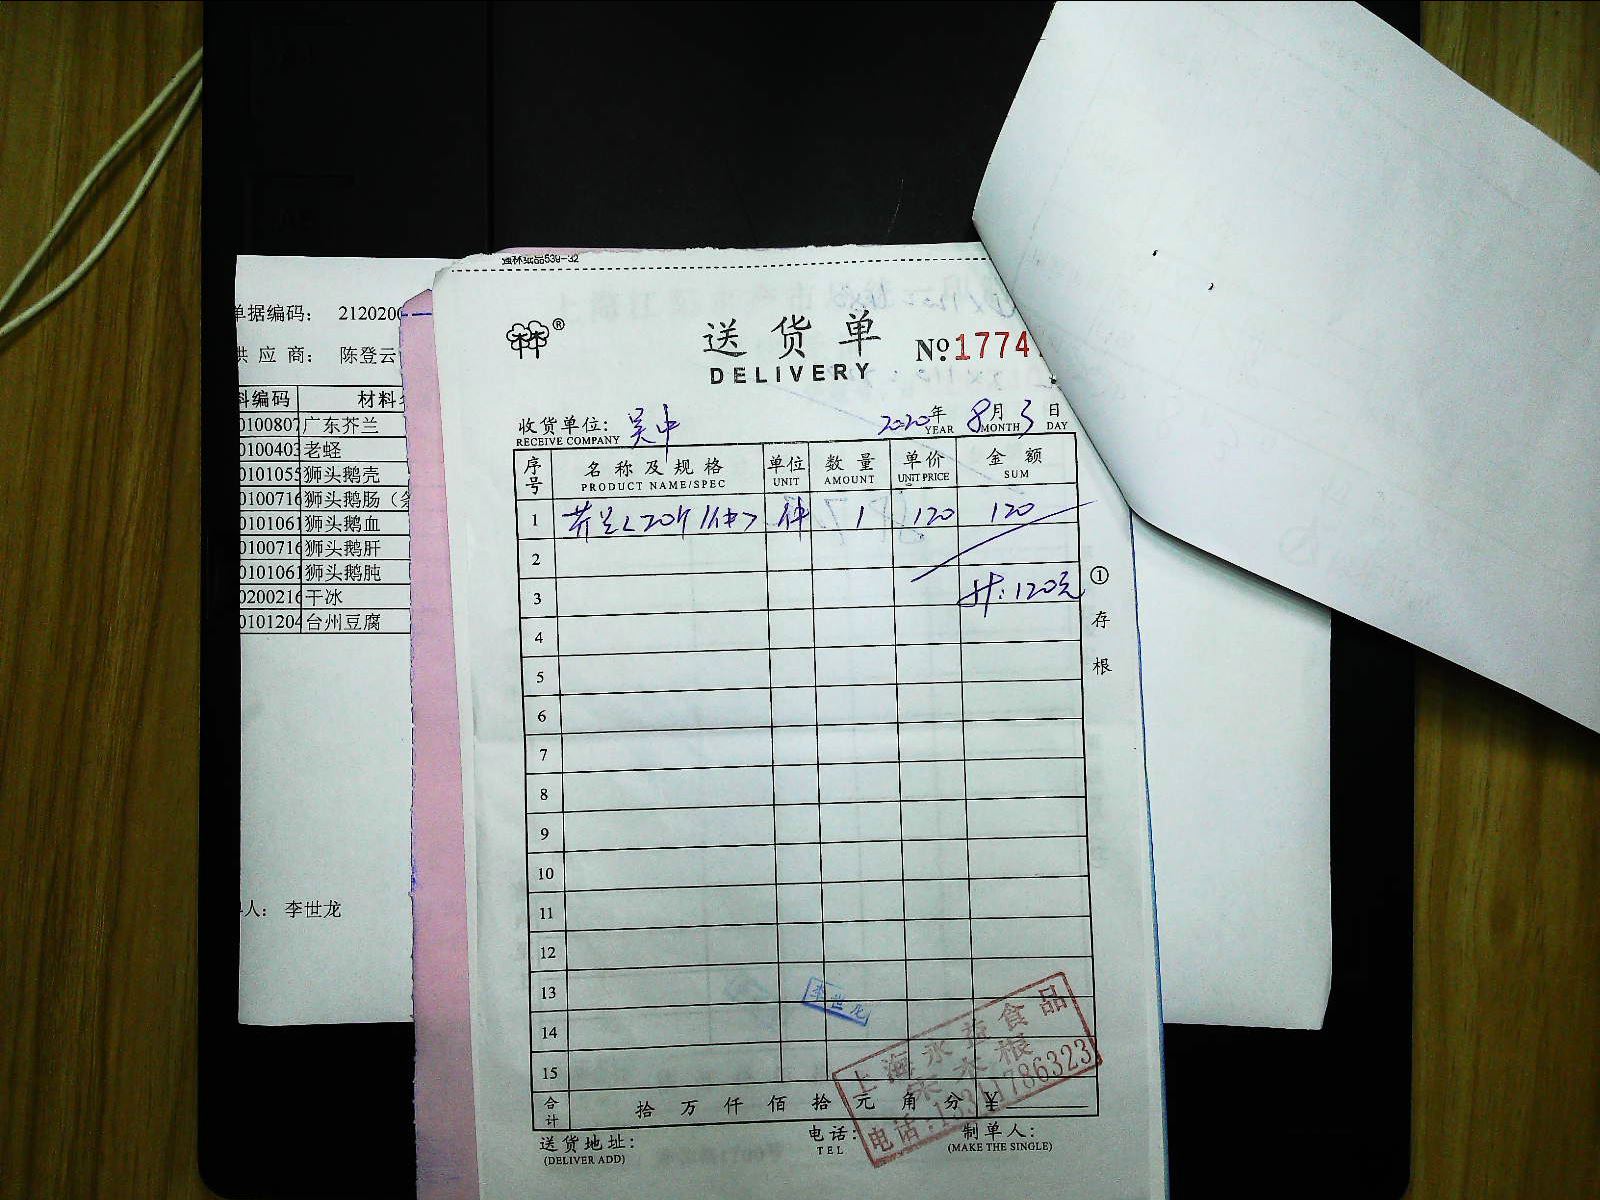 强林纸品539-32
单据编码： 2120200
供 应 商： 陈登云
料编码 材料
0100807 广东芥兰
0100403 老蛏
0101055 狮头鹅壳
0100716 狮头鹅肠（条
0101061 狮头鹅血
0100716 狮头鹅肝
0101061 狮头鹅肫
0200216 干冰
0101204 台州豆腐
人： 李世龙
®
送货单
DELIVERY
№ 1774
收货单位： 吴中 2020年 8月 3日
RECEIVE COMPANY YEAR MONTH DAY
序号 名称及规格 单位 数量 单价 金额
PRODUCT NAME/SPEC UNIT AMOUNT UNIT PRICE SUM
1 芥兰<20斤/件> 件 1 120 120
2
3 计:120元
4
5
6
7
8
9
10
11
12
13
14
15
① 存根
李世龙
合计 拾 万 仟 佰 拾 元 角 分 ￥
上海永益食品
送货地址： 电话： 制单人：
(DELIVER ADD) TEL (MAKE THE SINGLE)